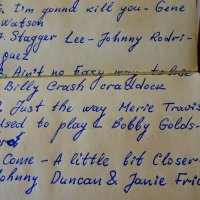 I'm gonna kill you - Gene
Watson
Stagger Lee - Johnny Rodri-
guez
Ain't no Easy way to
Billy Crash craddock
Just the way Merie Travis
used to play - Bobby Golds-
Come - A little bit Closer
Johnny Duncan & Janie Fric